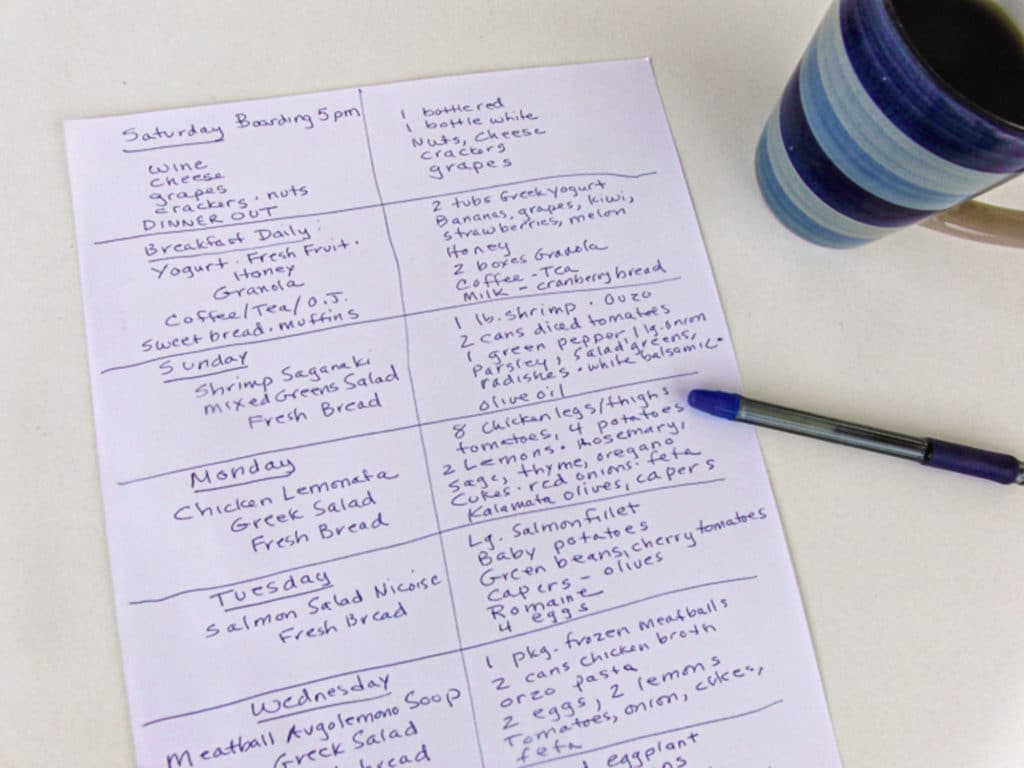 Saturday Boarding 5pm
wine
cheese
grapes
crackers . nuts
DINNER OUT
1 bottle red
1 bottle white
Nuts, cheese
crackers
grapes
Breakfast Daily:
Yogurt . Fresh Fruit .
Honey
Granola
Coffee/Tea/O.J.
Sweet bread . muffins
2 tubs Greek Yogurt
Bananas, grapes, kiwi,
strawberries, melon
Honey
2 boxes Granola
Coffee - Tea
Milk - cranberry bread
Sunday
Shrimp Saganaki
mixed Greens Salad
Fresh Bread
1 lb. shrimp . Ouzo
2 cans diced tomatoes
1 green pepper 1 lg. onion
Parsley, salad greens,
radishes . white balsomic .
olive oil
Monday
Chicken Lemonata
Greek Salad
Fresh Bread
8 chicken legs/thighs
tomatoes, 4 potatoes
2 Lemons . Rosemary,
sage, thyme, oregano
Cukes . red onions . feta
Kalamata olives, capers
Tuesday
Salmon Salad Nicoise
Fresh Bread
Lg. Salmon fillet
Baby potatoes
Green beans, cherry tomatoes
Capers - olives
Romaine
4 eggs
Wednesday
Meatball Avgolemono Soup
Greek Salad
bread
1 pkg. frozen meatballs
2 cans chicken broth
orzo pasta
2 eggs, 2 lemons
Tomatoes, onion, cukes,
feta
eggplant